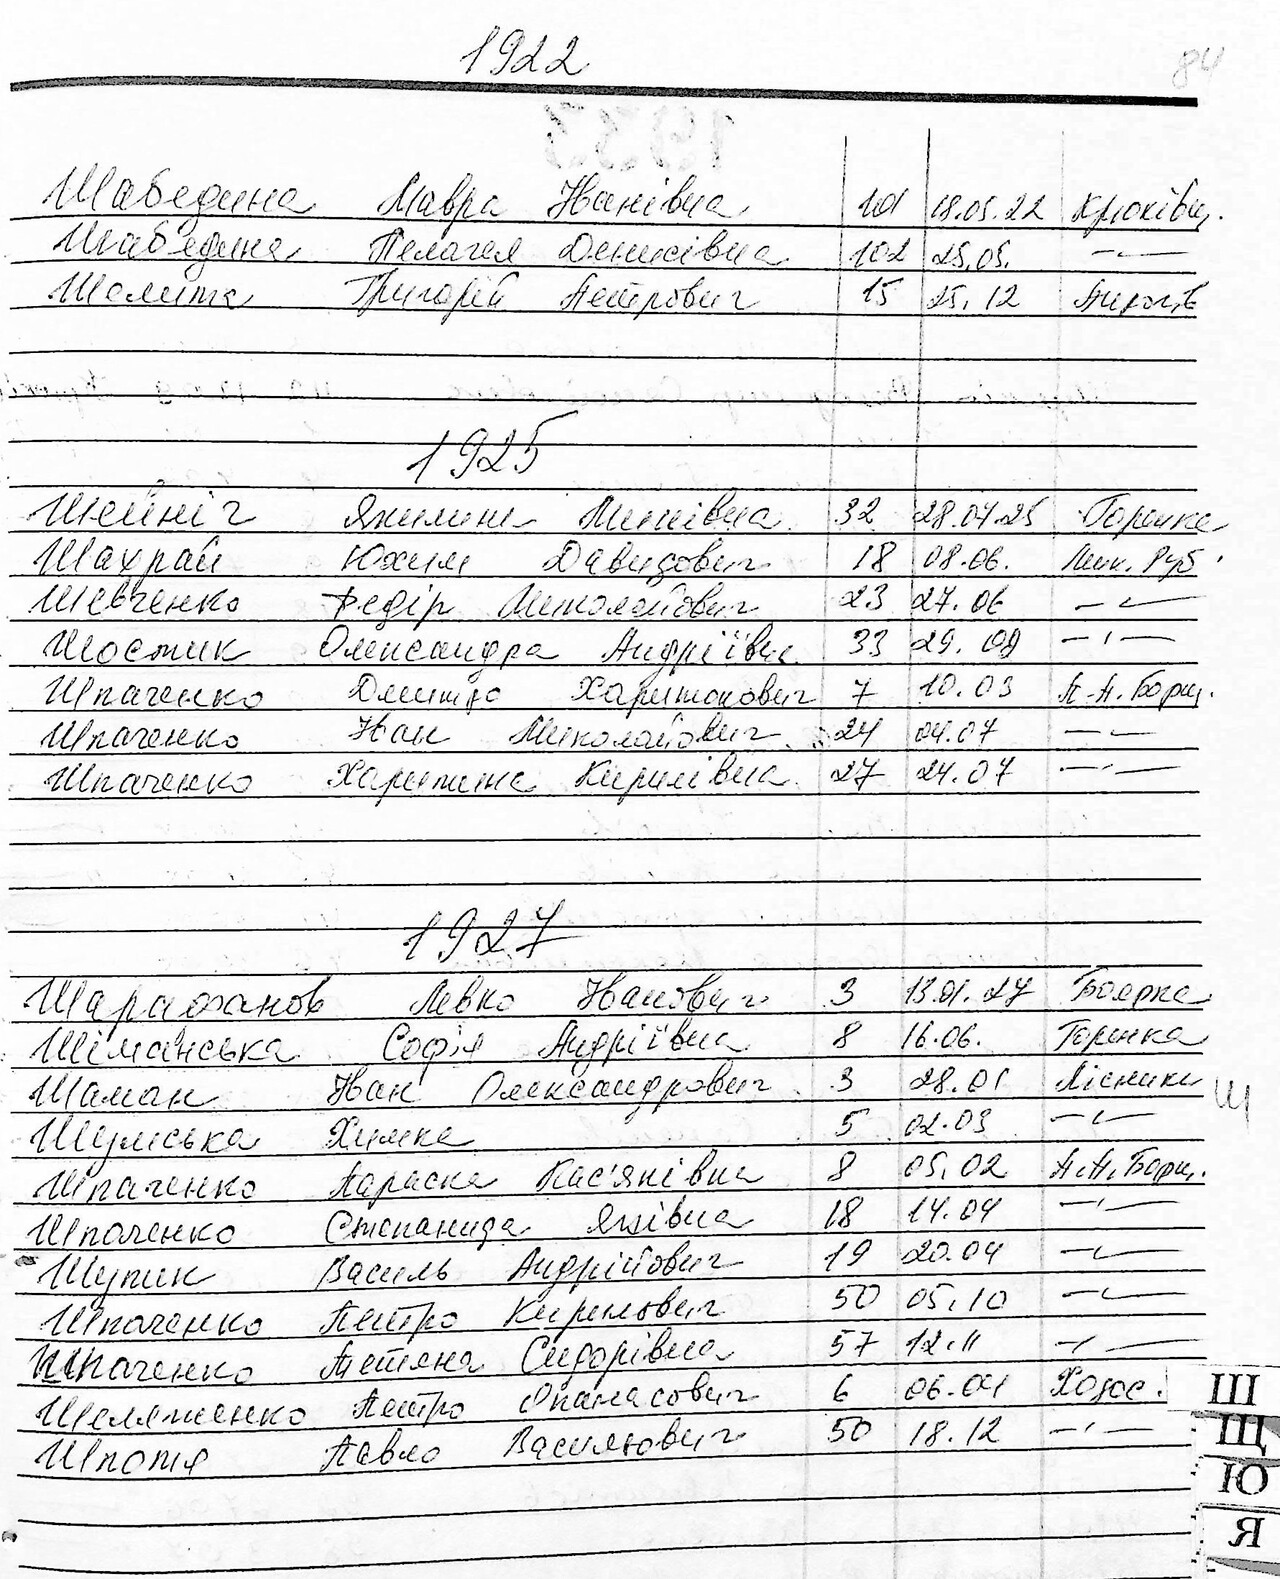 1922
84
Шабедина Мавра Іванівна 101 18.05.22 Крюківщ.
Шабедина Пелагея Денисівна 102 25.05. —"—
Шелита Григорій Петрович 15 25.12
1925
Шейніг Мусіївна 32 28.04.25 Горенка
Шахрай Юхим Давидович 18 08.06. Мик. Руб.
Шевченко Федір Миколайович 23 27.06 —"—
Шостик Олександра Андріївна 33 29.09 —"—
Шпаченко Дмитро Харитонович 7 10.03 П.-П. Борщ.
Шпаченко Іван Миколайович 24 04.07 —"—
Шпаченко Харитина Кирилівна 27 24.07 —"—
1927
Шарафанов Левко Іванович 3 13.01.27 Боярка
Шіманська Софія Андріївна 8 16.06. Горенка
Шаман Іван Олександрович 3 28.01 Лісники
Щ
Шумська Химка 5 02.03 —"—
Шпаченко Параска Кас'янівна 8 05.02 П.П. Борщ.
Шпаченко Степанида Яківна 18 14.04 —"—
Шупик Василь Андрійович 19 20.04 —"—
Шпаченко Петро Кирилович 50 05.10 —"—
Шпаченко Тетяна Сидорівна 57 12.11 —"—
Шеляженко Петро Опанасович 6 06.01 Хотів.
Шпота Павло Васильович 50 18.12 —"—
Ш
Щ
Ю
Я